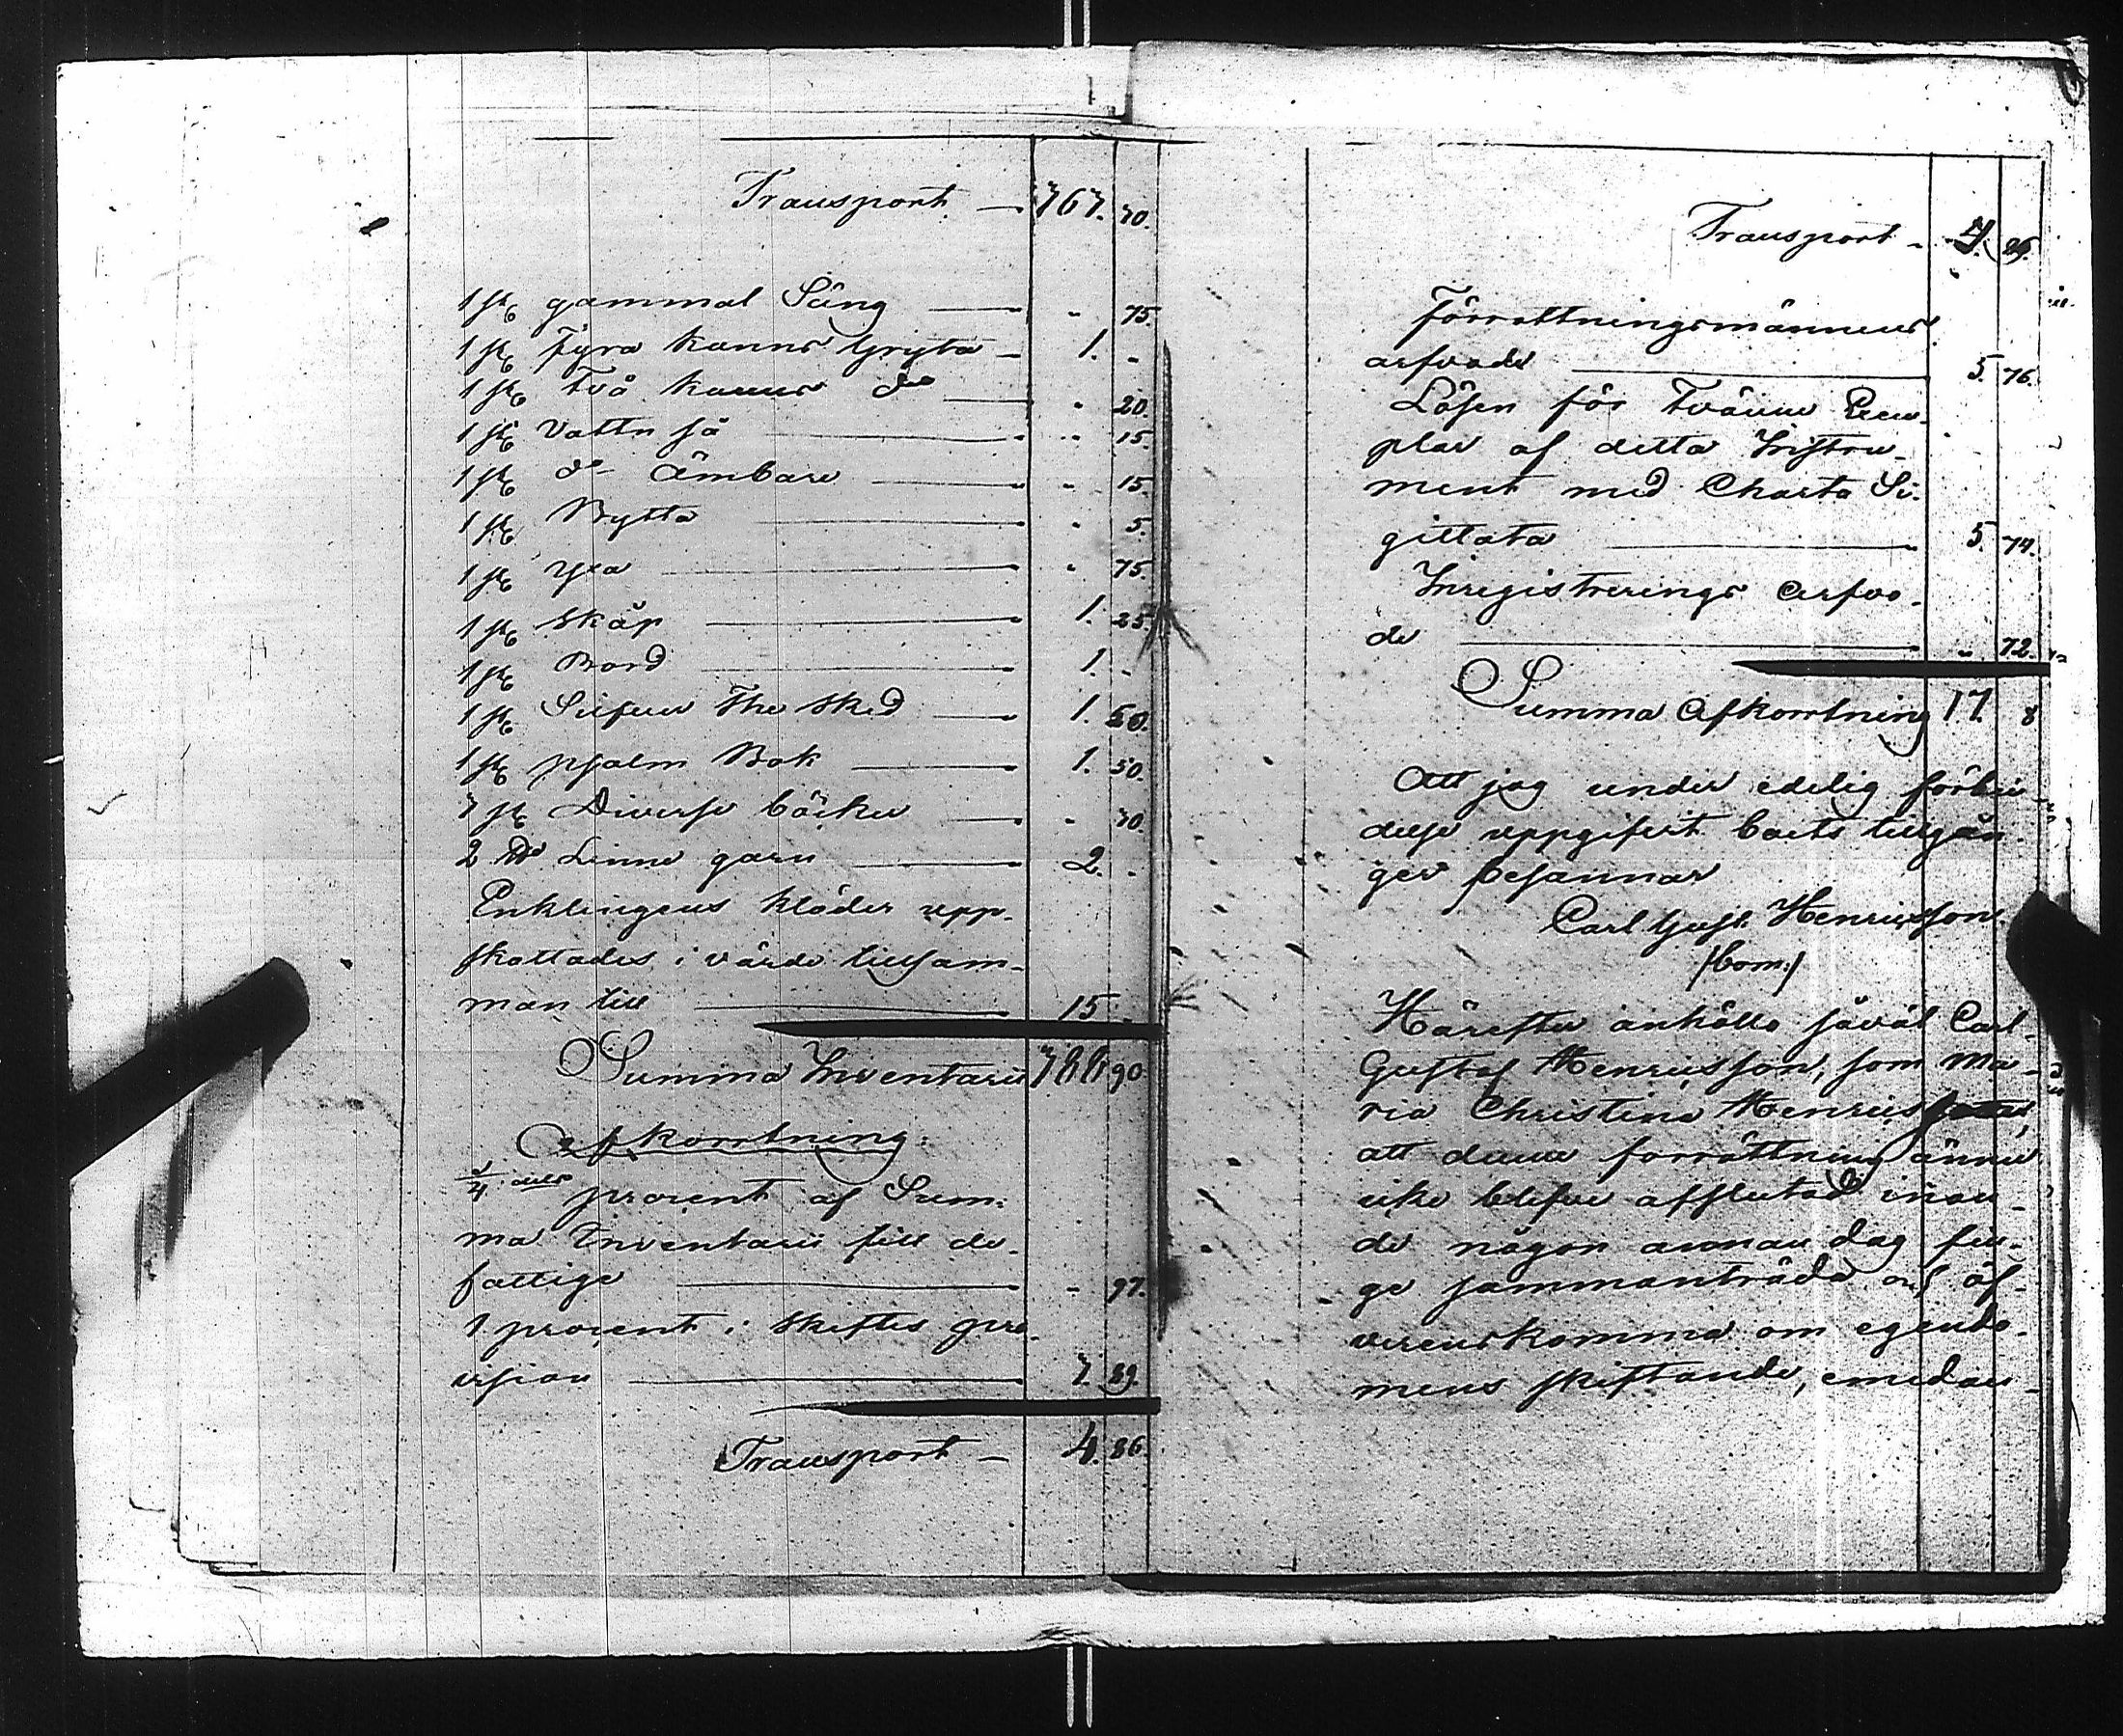 Transport — 767. 70.
1 st gammal Säng — - 75.
1 st Fyra kanns Gryta — 1. -
1 st Två kanns do — - 20.
1 st Vattn så — - 15.
1 st do Ämbare — - 15.
1 st Bytta — - 5.
1 st yxa — - 75.
1 st skåp — 1. 25.
1 st Bord — 1. -
1 st Silfver The sked — 1. 50.
1 st psalm Bok — 1. 50.
7 st Diverse böcker — - 70.
2 ℔ Linne garn — 2. -
Enklingens kläder upp-
skattades i värde tillsam-
man till — 15 -
Summa Inventarii 788 90
Afkorrtning.
1/4 dels procent af Sum-
ma Inventarii till de
fattige — - 97.
1 procent i skiftes pro-
vision — 7. 89.
Transport — 4. 86.
Transport - 4. 86.
Förrättningsmännens
arfvode — 5. 76.
Lösen för Tvänne Exem-
plar af detta Instru-
ment med Charta Si-
gillata — 5. 74.
Inregistrerings arfvo-
de — - 72.
Summa Afkorrtning 17. 8
Att jag under edelig förbin-
delse uppgifvit boets tillgån-
gar besannar
Carl Gust. Henriksson
/bom:/
Härefter anhöllo såväl Carl
Gustaf Henriksson, som Ma-
ria Christina
att denna förrättning ännu
icke blefve afslutad inan
de någon annan dag fin-
ge sammanträda och öf-
verenskomma om egendo-
mens skiftande, emedan